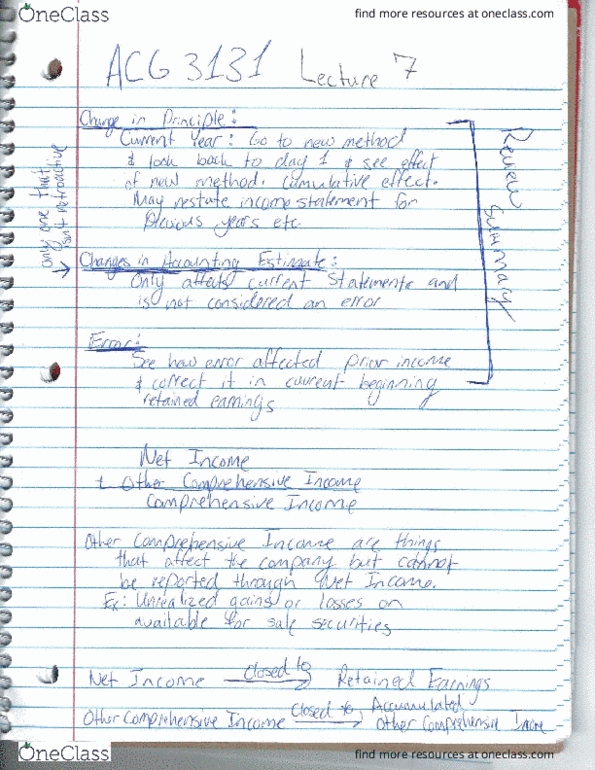 OneClass
find more resources at oneclass.com
ACG 3131 Lecture 7
Change in Principle:
Current Year: Go to new method
& look back to day 1 & see effect
of new method. Cumulative effect.
May restate income statement for
previous years etc.
Review Summary
only one that isn't retroactive
Changes in Accounting Estimate:
Only affects current statements and
is not considered an error
Error:
See how error affected prior income
& correct it in current beginning
retained earnings
Net Income
± Other Comprehensive Income
Comprehensive Income
Other Comprehensive Income are things
that affect the company but cannot
be reported through Net Income.
Ex: Unrealized gains or losses on
available for sale securities
Net Income closed to Retained Earnings
Other Comprehensive Income closed to Accumulated
Other Comprehensive Income
OneClass
find more resources at oneclass.com